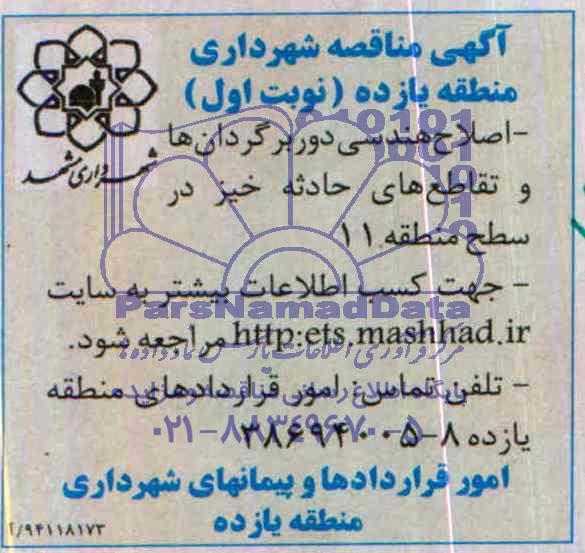 آگهی مناقصه شهرداری
منطقه یازده (نوبت اول)
شهرداری مشهد
-اصلاح هندسی دوربرگردان ها
و تقاطع های حادثه خیز در
سطح منطقه ۱۱
- جهت کسب اطلاعات بیشتر به سایت
ParsNamadData
http:ets.mashhad.ir مراجعه شود.
- تلفن تماس: امور قراردادهای منطقه
یازده ۸-۳۸۶۹۴۰۰۵
۰۲۱-۸۸۳۴۹۶۷۰-۵
امور قراردادها و پیمانهای شهرداری
منطقه یازده
/۹۴۱۱۸۱۷۳